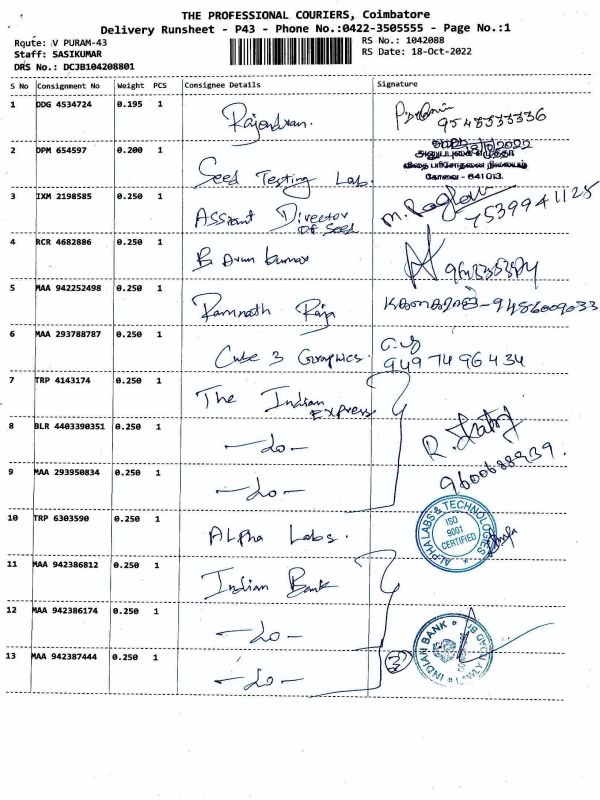 THE PROFESSIONAL COURIERS, Coimbatore
Delivery Runsheet - P43 - Phone No.:0422-3505555 - Page No.:1
Route: V PURAM-43
RS No.: 1042088
Staff: SASIKUMAR
RS Date: 18-Oct-2022
DRS No.: DCJB104208801
S No Consignment No Weight PCS Consignee Details Signature
1 DDG 4534724 0.195 1
Rajendran.
2 DPM 654597 0.200 1
Seed Testing Lab.
அனுபபுகை எழுத்தா
விதை பரிசோதனை நிலையம்
கோவை - 641013.
3 IXM 2198585 0.250 1
Assiant Director
Of Seed
7539941125
4 RCR 4682886 0.250 1
B Arun kumar
5 MAA 942252498 0.250 1
Ramnath Raja
கனகராஜ் - 9486009033
6 MAA 293788787 0.250 1
Cube 3 Graphics.
9497496434
7 TRP 4143174 0.250 1
The Indian
Express
8 BLR 4403390351 0.250 1
-do-
9 MAA 293950834 0.250 1
-do-
10 TRP 6303590 0.250 1
Alpha Labs.
ALPHA LABS & TECHNOLOGIES
ISO
9001
CERTIFIED
11 MAA 942386812 0.250 1
Indian Bank
12 MAA 942386174 0.250 1
-do-
INDIAN BANK
13 MAA 942387444 0.250 1
-do-
3